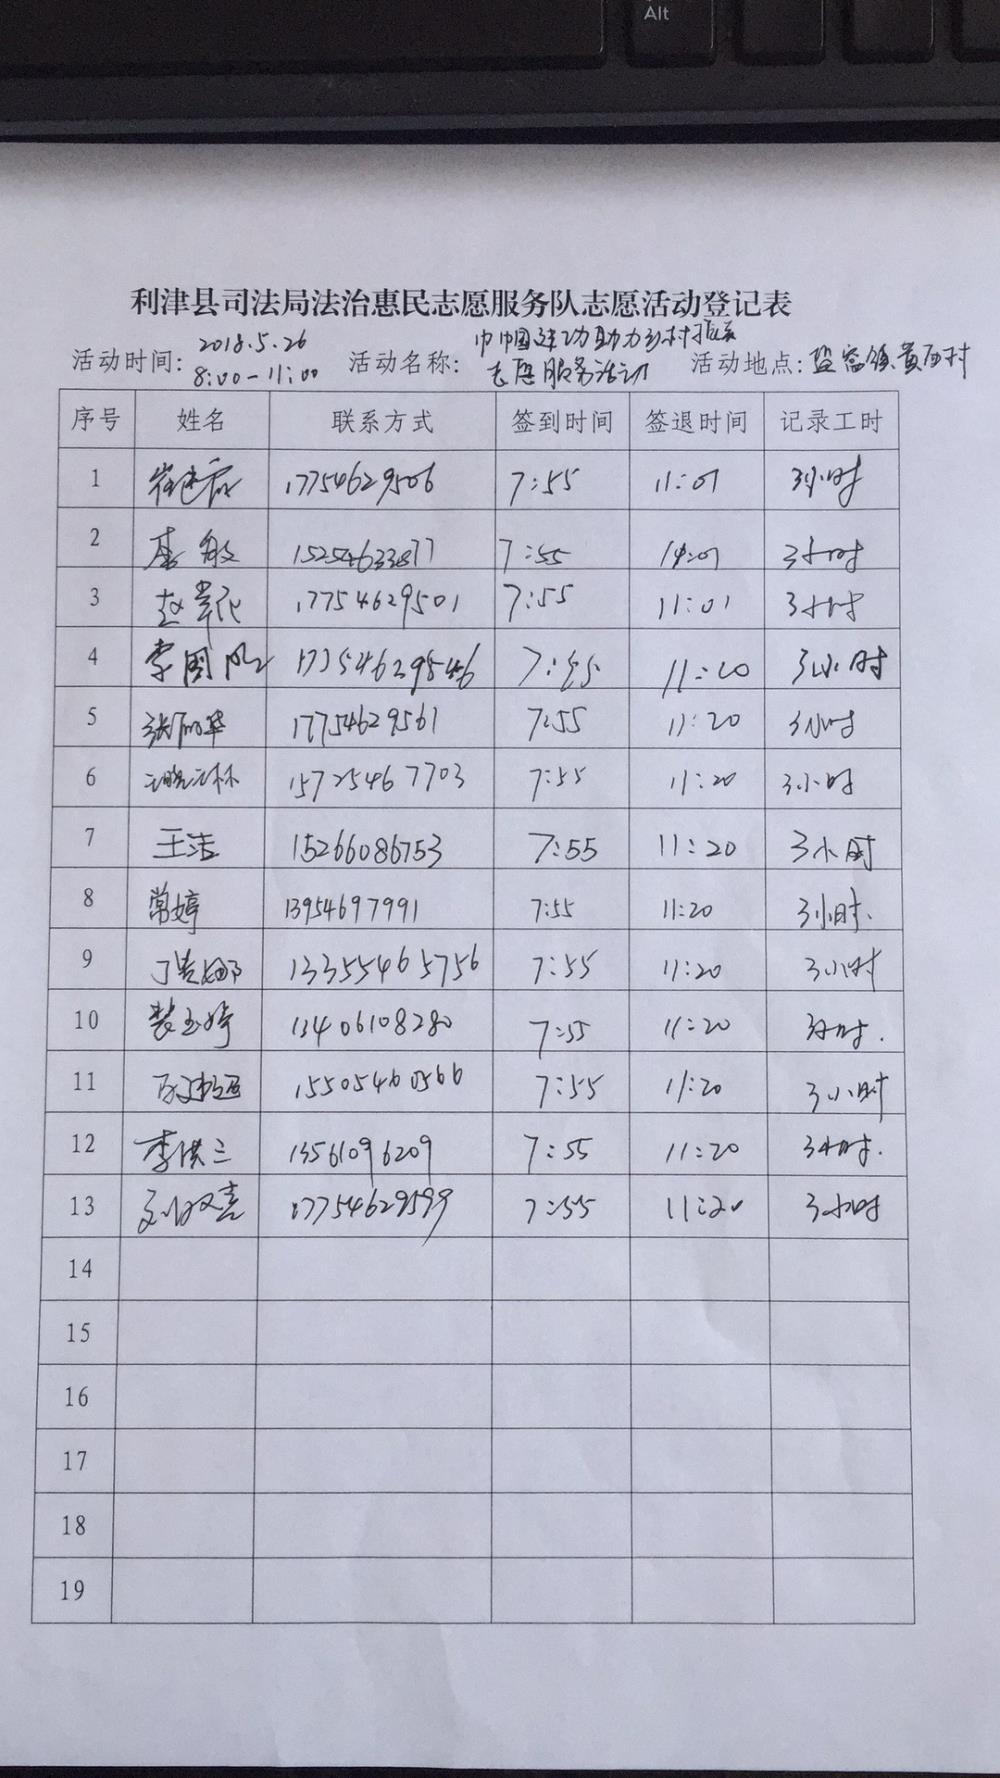 Alt
利津县司法局法治惠民志愿服务队志愿活动登记表
活动时间: 2018.5.26 8:00-11:00 活动名称: 巾帼建功助力乡村振兴志愿服务活动 活动地点: 盐窝镇黄西村
序号 姓名 联系方式 签到时间 签退时间 记录工时
1 17754629506 7:55 11:01 3小时
2 李敏 15254633877 7:55 11:01 3小时
3 17754629501 7:55 11:01 3小时
4 李国 17354629546 7:55 11:20 3小时
5 张丽华 17754629561 7:55 11:20 3小时
6 15725467703 7:55 11:20 3小时
7 王洁 15266086753 7:55 11:20 3小时
8 常婷 13954697991 7:55 11:20 3小时.
9 丁贵娜 13355465756 7:55 11:20 3小时
10 裴玉婷 13406108280 7:55 11:20 3小时.
11 15505460566 7:55 11:20 3小时
12 李洪三 13561096209 7:55 11:20 3小时.
13 刘汉亮 17754629599 7:55 11:20 3小时
14
15
16
17
18
19